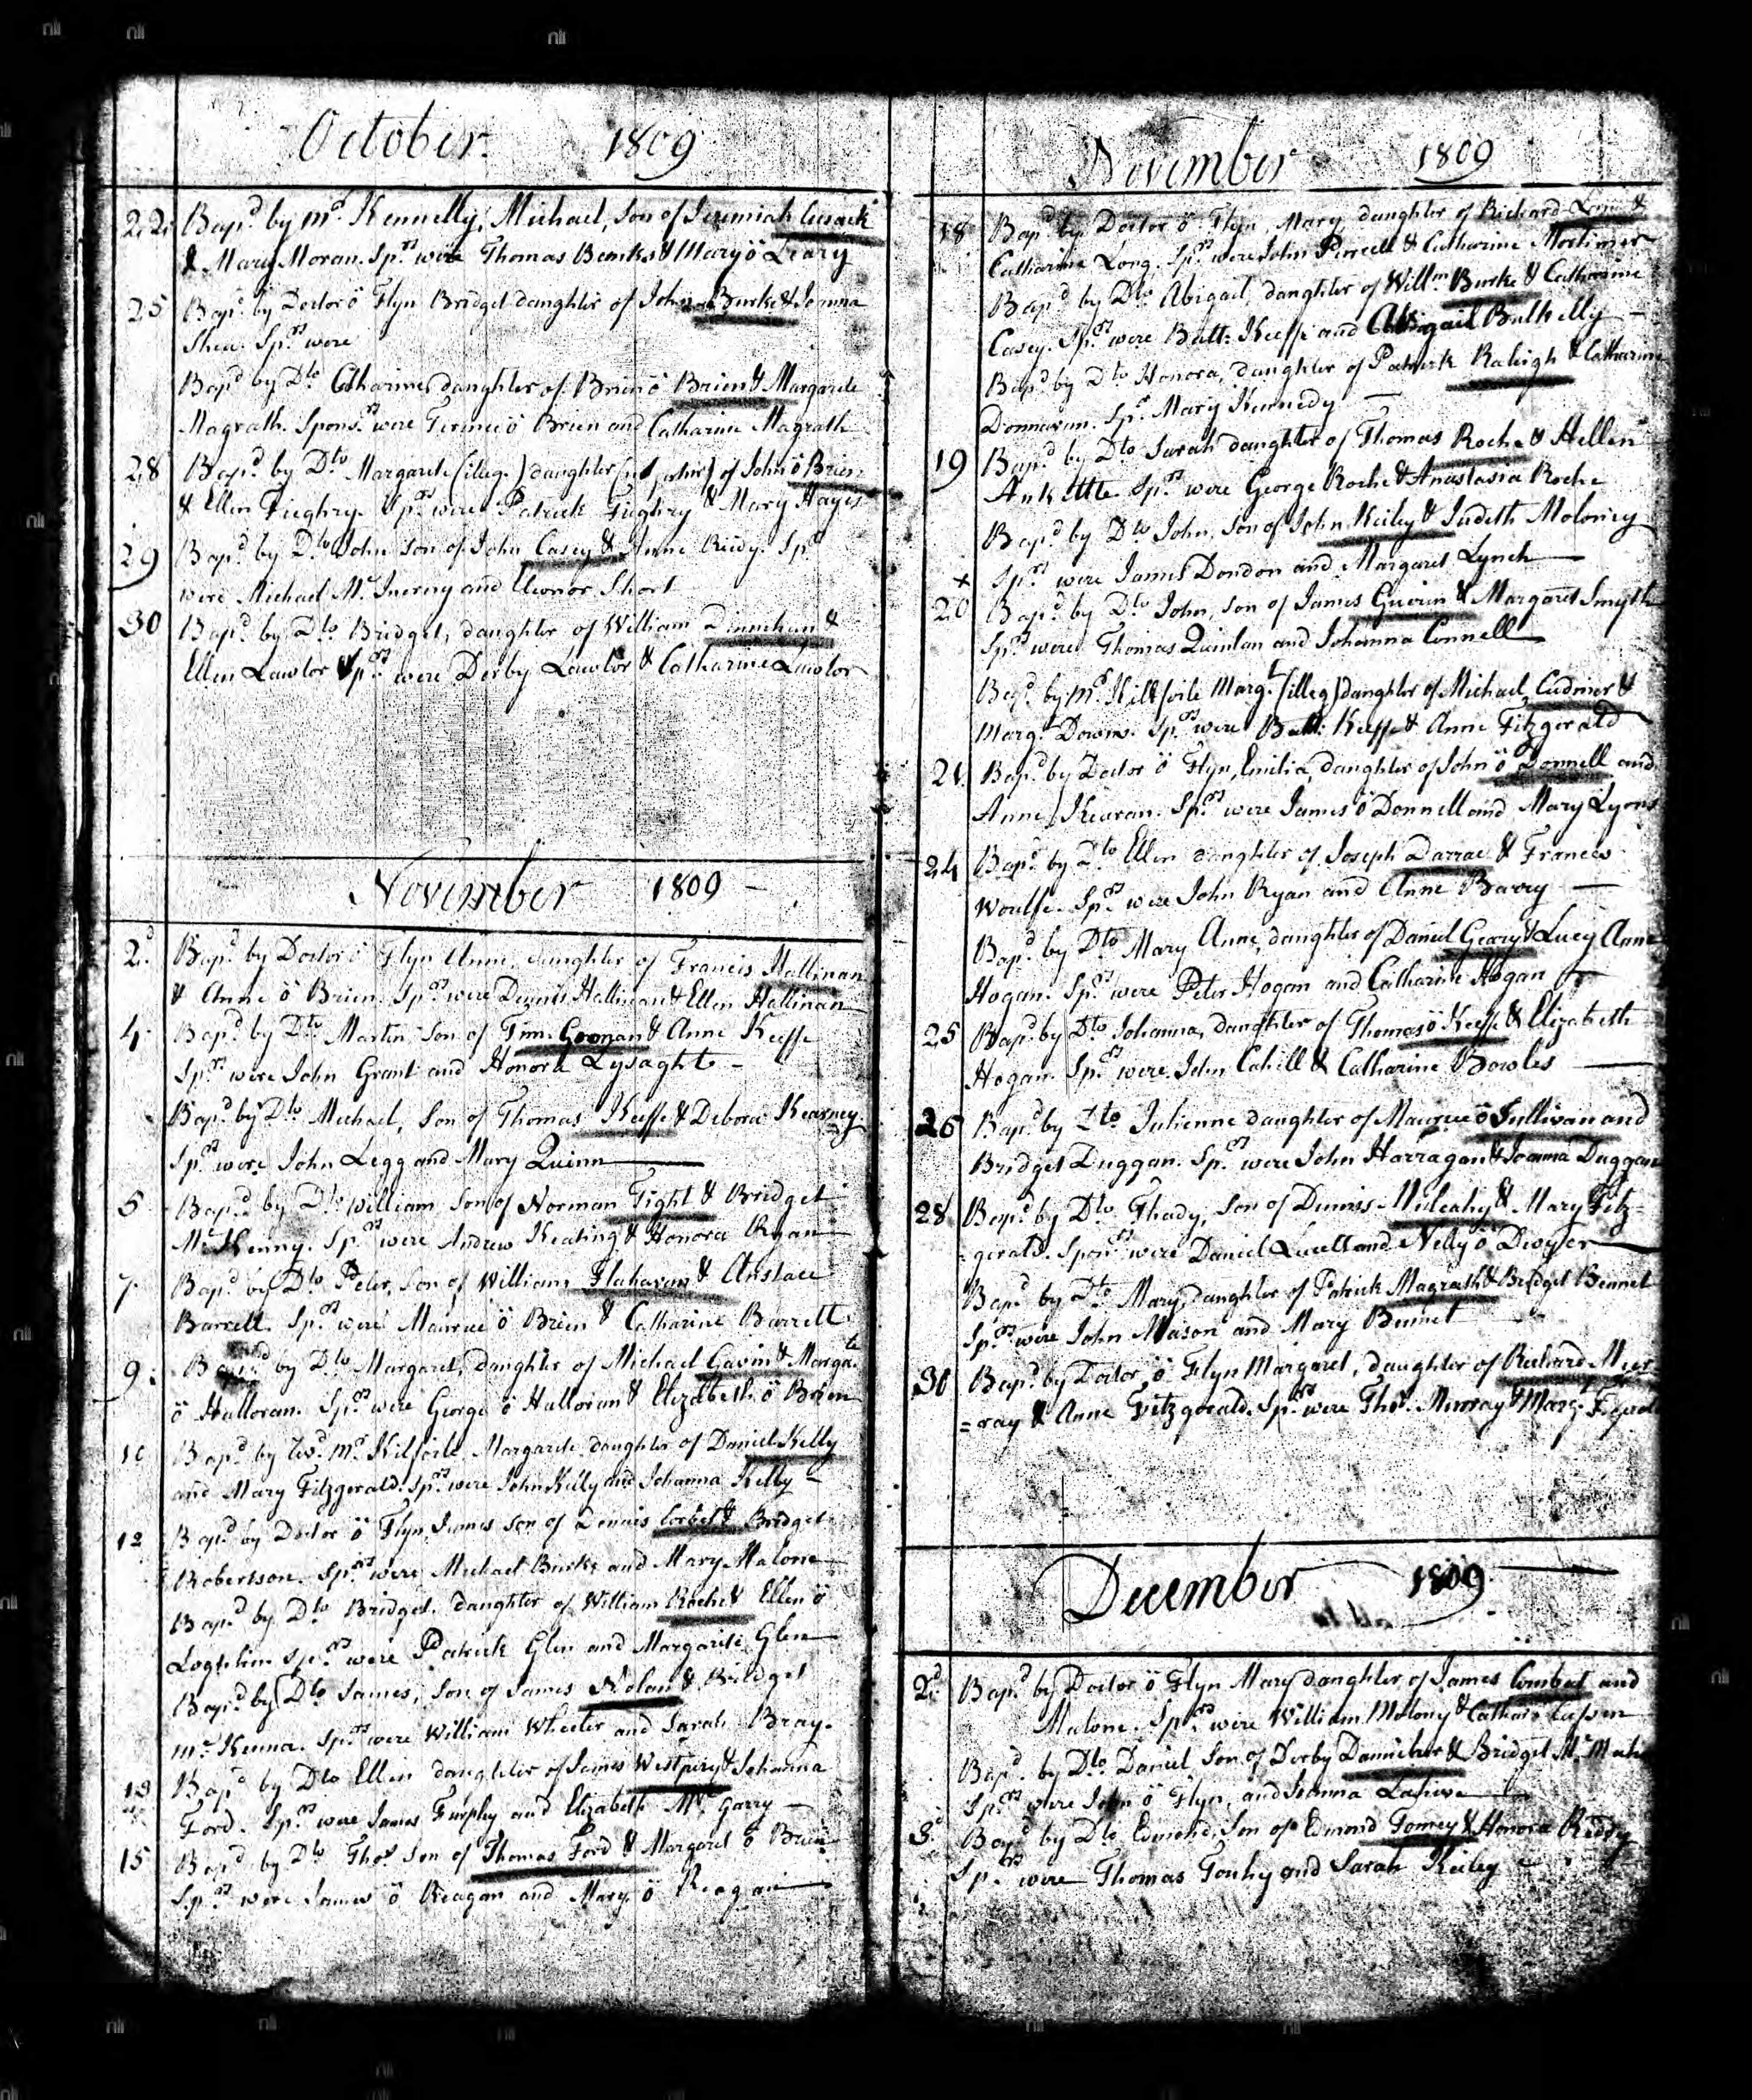 October. 1809
22. Bapd. by mr. Kennelly, Michael, Son of Jeremiah Cusack
& Mary Moran. Sprs. were Thomas Banks & Mary ö Leary
25 Bapd. by Doctor ö Flyn Bridget daughter of John Burke & Joanna
Shea. Sprs. were
Bapd. by Dto Catharine daughter of Brien ö Brien & Margarete
Magrath. Sponsrs. were Terence ö Brien and Catharine Magrath
28 Bapd. by Dto Margarete (illeg.) daughter of John ö Brien
& Ellen Fieghry. Sprs. were Patrick Fieghry & Mary Hayes
29 Bapd. by Dto John Son of John Casey & Anne Reidy. Sprs
were Michael Mc. Inerny and Eleonor Short
30 Bapd. by Dto. Bridget, daughter of William Dinnehan &
Ellen Lawlor Sprs. were Derby Lawlor & Catharine Lawlor
November 1809 -
2d. Bapd. by Doctor ö Flyn Anne, daughter of Francis Hallinan
& Anne ö Brien. Sprs. were Dennis Hallinan & Ellen Hallinan
4. Bapd. by Dto Martin Son of Tim. Goonan & Anne Keeffe
Sprs. were John Grant and Honora Lysaght -
Bapd. by Dto Michael, Son of Thomas Keeffe & Debora Kearney
Sprs. were John Legg and Mary Quinn
5 Bapd. by Dto William Son of Norman Tight & Bridget
Mc. Kenny. Sprs. were Andrew Keating & Honora Ryan
7. Bapd. by Dto Peter, Son of William Flahavan & Anstace
Barrett. Sprs. were Maurice ö Brien & Catharine Barrett
9. Bapd. by Dto Margaret, daughter of Michael Gavin & Margte.
ö Halloran. Sprs. were George ö Halloran & Elizabeth ö Brien
10 Bapd. by mr. Kilfoile Margarete daughter of Daniel Kelly
and Mary Fitzgerald. Sprs. were John Kelly and Johanna Kelly -
12 Bapd. by Doctor ö Flyn James Son of Dennis Corbet & Bridget
Robertson. Sprs. were Michael Burke and Mary Malone
Bapd. by Dto Bridget. daughter of William Roche & Ellen ö
Loghlin Sprs. were Patrick Glen and Margarete Glen
Bapd. by Dto James, Son of James Nolan & Bridget
mc. Kenna. Sprs. were William Wheeler and Sarah Bray.
13 Bapd. by Dto Ellen daughter of James & Johanna
Ford. Sprs. were James Furphy and Elizabeth Mc. Garry
15 Bapd. by Dto Thos. Son of Thomas Ford & Margaret ö Brien
Sprs. were James ö Reagan and Mary ö Reagan
November 1809
18 Bapd. by Doctor ö Flyn, Mary daughter of Richard &
Catharine Long. Sprs. were John Purcell & Catharine Mortimer
Bapd. by Dto. Abigail, daughter of Willm Burke & Catharine
Casey. Sprs. were Batt: Keeffe and Abigail Bulkelly -
Bapd. by Dto Honora, daughter of Patrick Raleigh & Catharine
Donnavan. Spr. Mary Kennedy
19 Bapd. by Dto Sarah daughter of Thomas Roche & Hellen
Ankettle. Sprs. were George Roche & Anastasia Roche
Bapd. by Dto John, Son of John Keiley & Judeth Moloney
Sprs. were James Dondon and Margaret Lynch
x
20 Bapd. by Dto John, Son of James Guerin & Margaret Smyth
Sprs. were Thomas Quinlan and Johanna Connell
Bapd. by mr. Killfoile Margt. (illeg) daughter of Michael Cudmor &
Marg. Downs. Sprs. were Batt: Keeffe & Anne Fitzgerald
21. Bapd. by Doctor ö Flyn, Emilia, daughter of John ö Donnell and
Anne Kearan. Sprs. were James ö Donnell and Mary Lyons
24 Bapd. by Dto Ellen daughter of Joseph Darrac & Frances
Woulfe. Sprs. were John Ryan and Anne Barry
Bapd. by Dto Mary Anne, daughter of Daniel Geary & Lucy Anne
Hogan. Sprs. were Peter Hogan and Catharine Hogan
25 Bapd. by Dto Johanna, daughter of Thomas ö Keeffe & Elizabeth
Hogan. Sprs. were John Cahill & Catharine Bowles
26 Bapd. by Dto Julienne daughter of Maurice ö Sullivan and
Bridget Duggan. Sprs. were John Harragan & Joanna Duggan
28 Bapd. by Dto Thady, Son of Dennis Mulcahy & Mary Fitz-
=gerald. Sponrs. were Daniel Lucell and Nelly ö Dwyer
Bapd. by Dto Mary, daughter of Patrick Magrath & Bridget Bennet
Sprs. were John Mason and Mary Bennet
30 Bapd. by Doctor ö Flyn Margaret, daughter of Richard Mur
=ray & Anne Fitzgerald. Sprs. were Thos. Murray & Marg.
December 1809
2d. Bapd. by Doctor ö Flyn Mary daughter of James Combat and
Malone. Sprs. were William Molony & Cathare. Cussen
Bapd. by Dto Daniel, Son of Derby Danneher & Bridget Mc.
Sprs. were John ö Flyn, and Joanna
3d. Bapd. by Dto Edmond, Son of Edmond Tomey & Honora Reddy
Sprs. were Thomas Touhy and Sarah Keiley